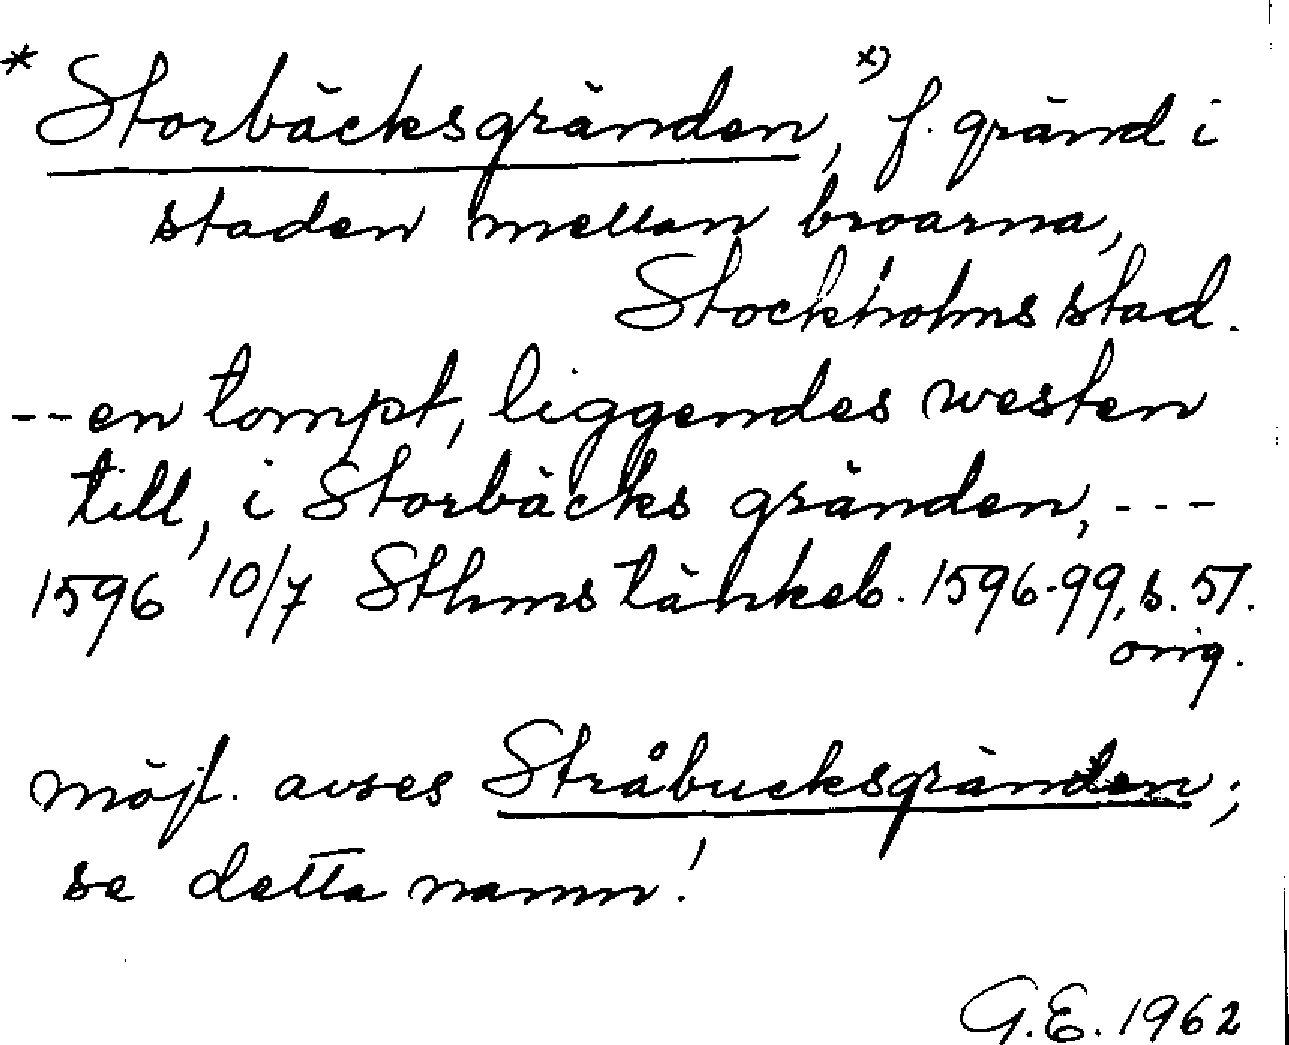 * Storbäcksgränden, x) f. gränd i
staden mellan broarna,
Stockholms stad.
-- en tompt, liggendes westen
till, i Storbäcks gränden, ---
1596 10/7 Sthms tänkeb. 1596-99, s. 51.
orig.
möjl. avses Stråbucksgränden;
se detta namn!
G.E. 1962